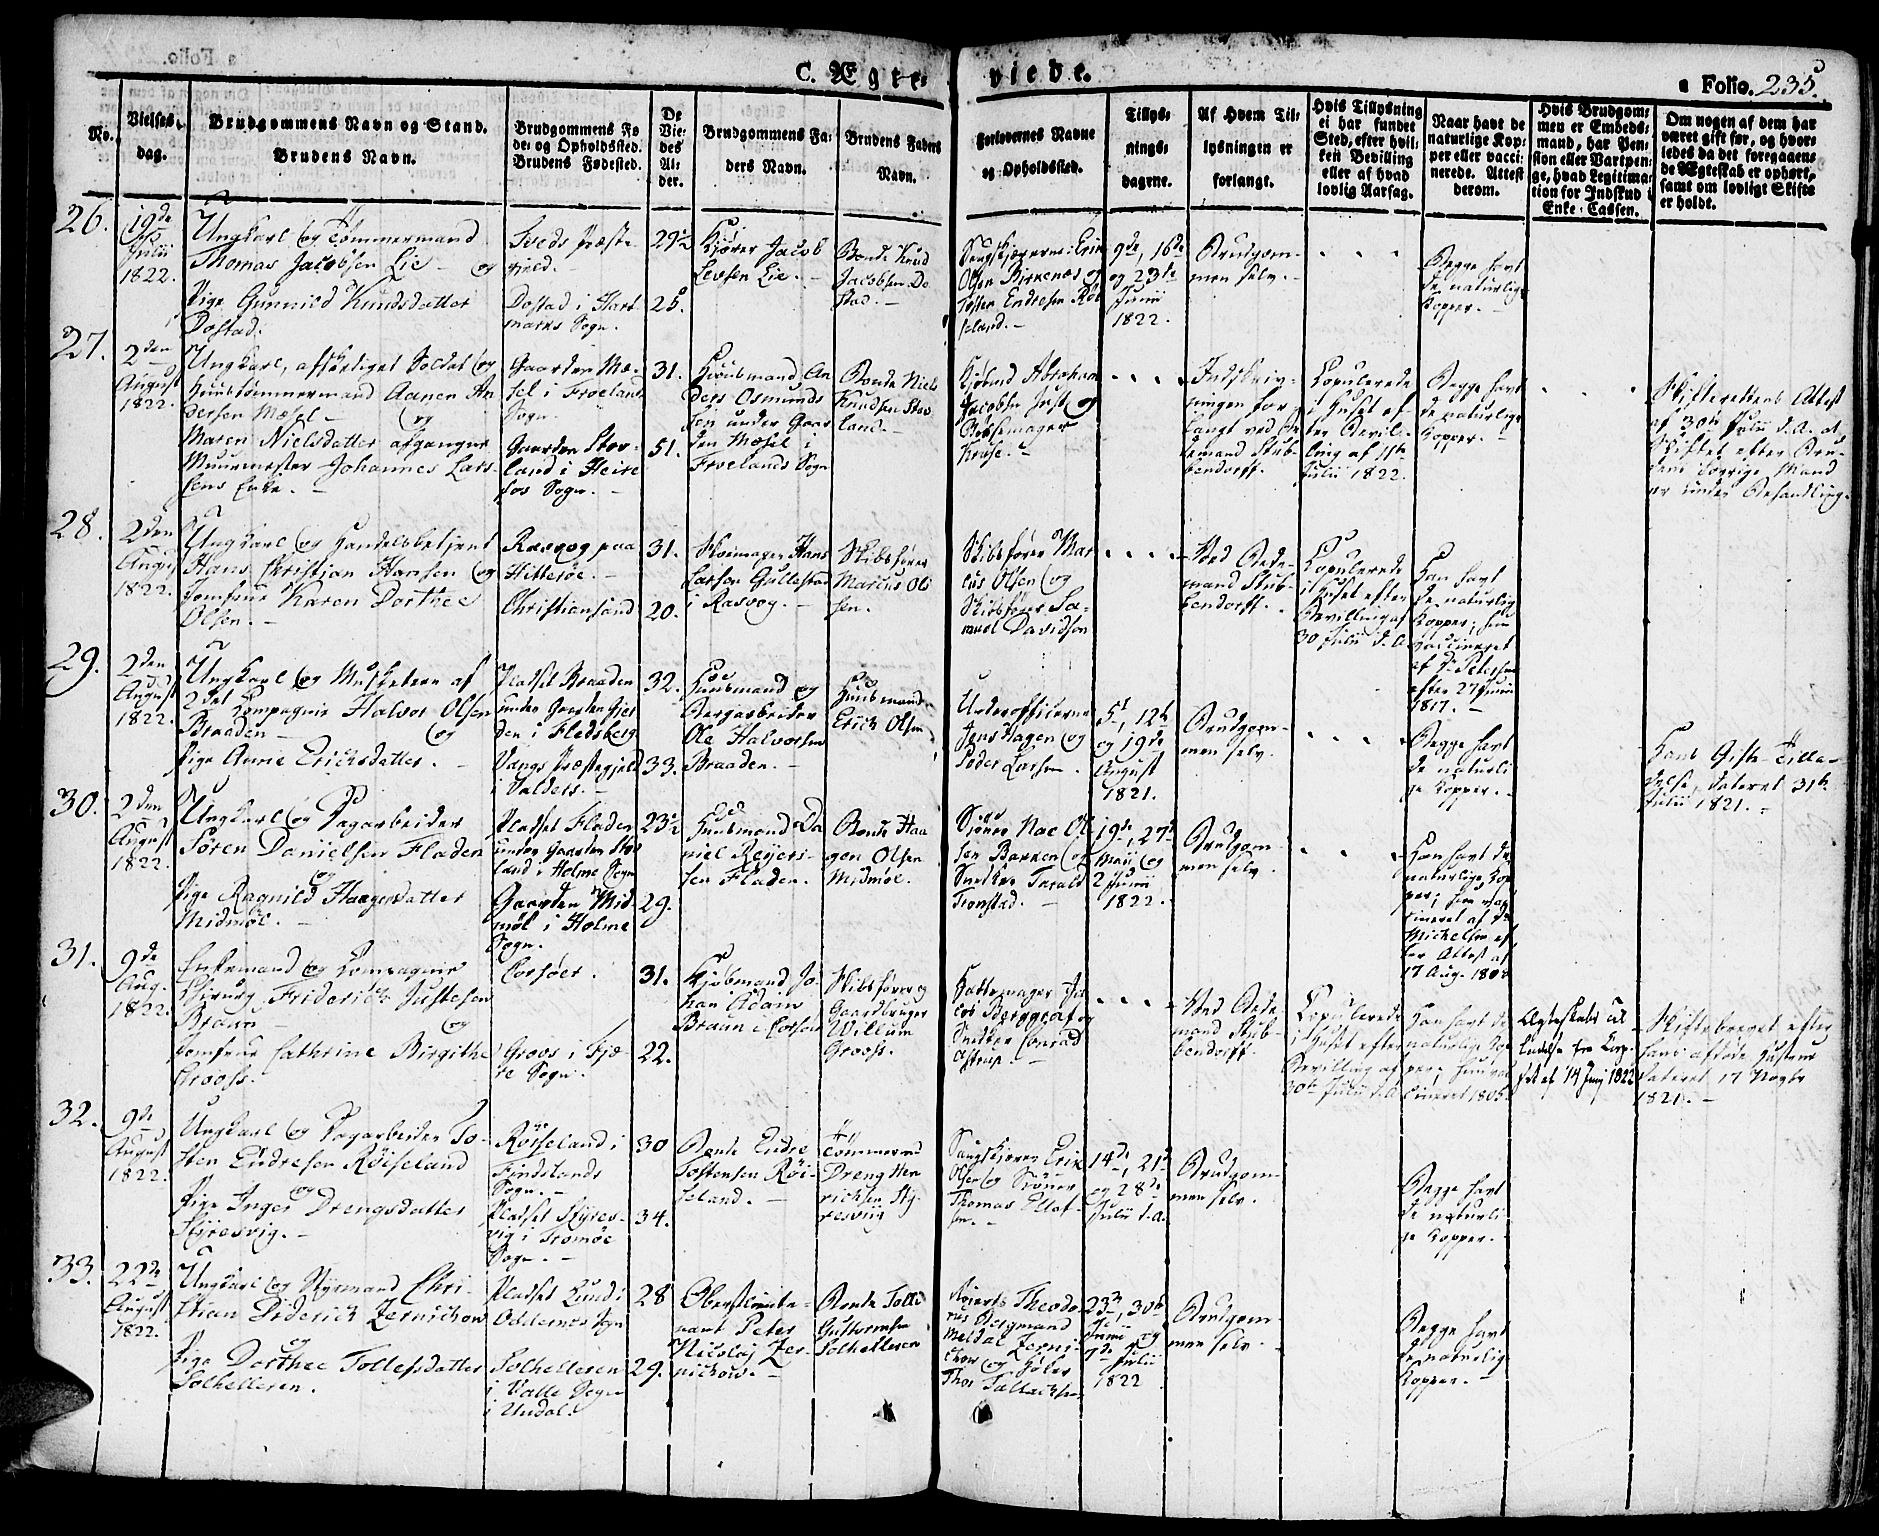 C. Ægte-
viede.
a Folio. 235.
No.
Vielses-
dag.
Brudgommens Navn og Stand.
Brudens Navn.
Brudgommens Fø
de- og Opholdssted.
Brudens Fødested.
De
Vie-
des
Al-
der.
Brudgommens Fa-
ders Navn.
Brudens Faders
Navn.
Forlovernes Navne
og Opholdssted.
Tillys-
nings-
dagene.
Af Hvem Til-
lysningen er
forlangt.
Hvis Tillysning
ei har fundet
Sted, efter hvil-
ken Bevilling
eller af hvad
lovlig Aarsag.
Naar havt de
naturlige Kop-
per eller vacci-
nerede. Attest
derom.
Hvis Brudgom-
men er Embeds-
mand, har Pen-
sion eller Vartpen-
ge, hvad Legitima-
tion for Indskud i
Enke-Cassen.
Om nogen af dem har
været gift før, og hvor-
ledes da det foregaaen-
de Ægteskab er ophørt,
samt om lovligt Skifte
er holdt.
26.
19de
Julii
1822.
Ungkarl og Tømmermand
Thomas Jacobsen Lie - og
Pige Gunnild Knudsdatter
Dostad.
Dostad i Hart
marks Sogn.
29½
25.
Jacob
Levsen Lie. -
Bonde Knud
Jacobsen Do
stad. -
Erik
Olsen Birkenæs og
Tosten Endresen Røi
seland. -
9de, 16de
og 23de
Junii
1822.
Brudgom-
men selv. -
Begge havt
de naturlige
Kopper. -
27.
2den
August
1822.
Ungkarl, afskediget Soldat og
Huustømmermand Aanen An
dersen Mæsel - og
Maren Nielsdatter afgangne
Muurmester Johannes Lars-
sens Enke. -
Gaarden Mæ-
sel i Froeland
Sogn.
Gaarden Stov-
land i Heire
fos Sogn. -
31.
51.
Huusmand An
ders Osmunds
sen under Gaar
den Mæsel i
Froelands Sogn
Bonde Niels
Knudsen Stov
land. -
Kjøbmd Abraham
Jacobsen Just og
Krase. -
Indskriv-
ningen for-
langt ved Be
demand Stub-
bendorff.
Copulerede
i Huset ef-
ter Bevil-
ling af 11te
Julii 1822.
Begge havt
de naturlige
Kopper. -
Skifterettens Attest
af 30te Julii d. A. at
Skiftet efter Bru-
dens forrige Mand
er under Behandling.
28.
2den
August
1822.
Ungkarl og Handelsbetjent
Hans Christian Hansen og
Jomfrue Karen Dorthee
Olsen. -
Rasvog paa
Hitterøe. -
Christiansand
31.
20.
Skomager Hans
Larsen Gullestad
i Rasvog. -
Skibsfører
Marcus Ol
sen.
Skibsfører Mar
cus Olsen og
Skibsfører Sa-
muel Davidsen
Ved Bede-
mand Stub-
bendorff.
Copulerede
i Huset efter
Bevilling af
30 Julii d. A.
Han havt
de naturlig
Kopper; hun
vaccineret
af Dr Petersen
efter 27 Junii
1817. -
29.
2den
August
1822.
Ungkarl og Musketeer af
2det Compagnie Halvor Olsen
Braaden - og
Pige Anne Erichsdatter. -
Pladset Braaden
under Gaarden Gjer
den i Fledsberg
Vangs Præstegjeld
i Valders. -
32.
33.
Huusmand og
Bergarbeider
Ole Halvorsen
Braaden. -
Huusmand
Erich Olsen
Underofficerne
Jens Hagen og
Peder Larsen.
5te, 12te
og 19de
August
1821.
Brudgom-
men selv.
Begge havt
de naturli
ge Kopper. -
Hans Gifte-Tilla-
delse, dateret 31te
Julii 1821. -
30.
2den
August
1822.
Ungkarl og Dagarbeider
Søren Danielsen Fladen
og
Pige Ragnild Haagensdatter
Midmøl. -
Pladset Fladen
under Gaarden
land i Holme Sogn
Gaarden Mid-
møl i Holme
Sogn.
23½
29.
Huusmand Da
niel Reyers-
sen Fladen. -
Bonde Haa
gen Olsen
Midmøe.
Ol
sen Bakken og
Snedker
Tronstad. -
19de, 27de
Maii og
2 Junii
1822.
Brudgom-
men selv.
Han havt de
naturlige Kop
per; hun vac
cineret af Dr
Michelsen ef
ter Attest af
17 Aug. 1808
31.
9de
Aug.
1822.
Enkemand og Compagnie
Chirurg Friderich Justesen
Braun - og
Jomfrue Cathrine Birgithe
Grooss.
Corsøer.
Groos i Fjæ-
re Sogn.
31.
22.
Kjøbmand Jo-
han Adam
Braun i Corsøer
Skibsfører og
Gaardbruger
Willum
Grooss.
Hattemager Ja
cob Berggraf og
Snedker Conrad
Astrup. -
Ved Bede
mand Stub-
bendorff.
Copulerede
i Huset efter
Bevilling af
30te Julii d. A.
Han havt de
naturlige Kop
per; hun vac
cineret 1805.
Ægteskabs til
ladelse fra Corp
set af 14 Junj 1822
Skiftebrevet efter
hans afdøde Hustrue
dateret 17 Novbr
1821. -
32.
9de
August
1822.
Ungkarl og Dagarbeider To-
sten Endresen Røiseland
og
Pige Inger Drengsdatter
Styresvig. -
Røiseland i
Findslands
Sogn. -
Pladset Styres-
vig i Tromøe
Sogn. -
30
34.
Bonde Endre
Tostensen Røi-
seland. -
Tømmermd
Dreng Hen
richsen Sty
resviig
Erik
Olsen og
Thomas Ellef-
sen. -
14de, 21de
og 28de
Julii d. A.
Brudgom-
men selv.
Begge havt
de naturli
ge Kopper. -
33.
22de
August
1822.
Ungkarl og Styrmand Chri-
stian Diderich Zernichow
og
Pige Dorthee Tollefsdatter
Solhelleren.
Pladset Lund i
Oddernes Sogn
Solhelleren
i Valle Sogn
i Undal.
28
29.
Oberstleute-
nant Peter
Nicolaj Zer-
nichow. -
Bonde Tollef
Guttormsen
Solhelleren
Theodo-
rus Bergmand
Meldal Zerni-
chow og
Thor Tallachsen
23de, 30te
Junii og
7de Julii
1822
Brudgom-
men selv.
Begge havt
de naturlig
Kopper. -